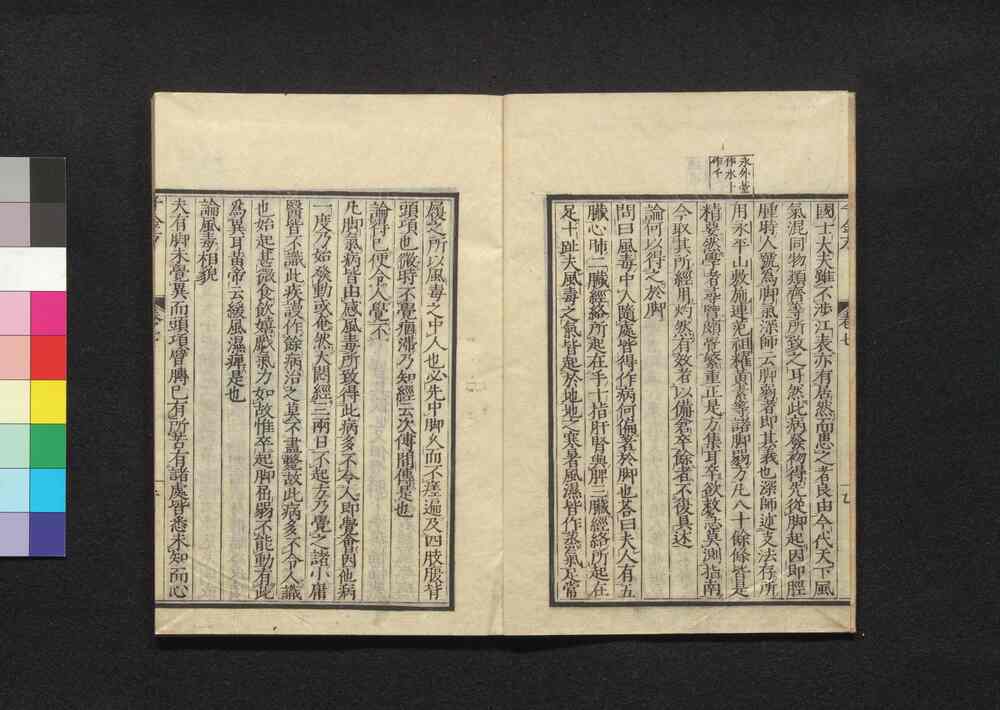 國士大夫雖不涉江表亦有居然而患之者良由今代天下風
氣混同物類齊等所致之耳然此病發初得先從脚起因即脛
腫時人號為脚氣深師云脚弱者即其義也深師述支法存所
用永平山敷施連范祖耀黃素等諸脚弱方凡八十餘條皆是
精要然學者尋覽頗覺繁重正是方集耳卒欲救急莫測指南
今取其所經用灼然有效者以備倉卒餘者不復具述
論何以得之於脚
問曰風毒中人隨處皆得作病何偏著於脚也荅曰夫人有五
臟心肺二臟經絡所起在手十指肝腎與脾三臟經絡所起在
足十趾夫風毒之氣皆起於地地之寒暑風濕皆作蒸氣足常
永外臺
作水上
作千
履之所以風毒之中人也必先中脚久而不瘥遍及四肢腹背
頭項也微時不覺痼滯乃知經云次傳間傳是也
論得已便令人覺不
凡脚氣病皆由感風毒所致得此病多不令人即覺會因他病
一度乃始發動或奄然大悶經三兩日不起方乃覺之諸小庸
醫皆不識此疾謾作餘病治之莫不盡斃故此病多不令人識
也始起甚微食飲嬉戲氣力如故惟卒起脚屈弱不能動有此
為異耳黃帝云緩風濕痺是也
論風毒相貌
夫有脚未覺異而頭項臂膊已有所苦有諸處皆悉未知而心